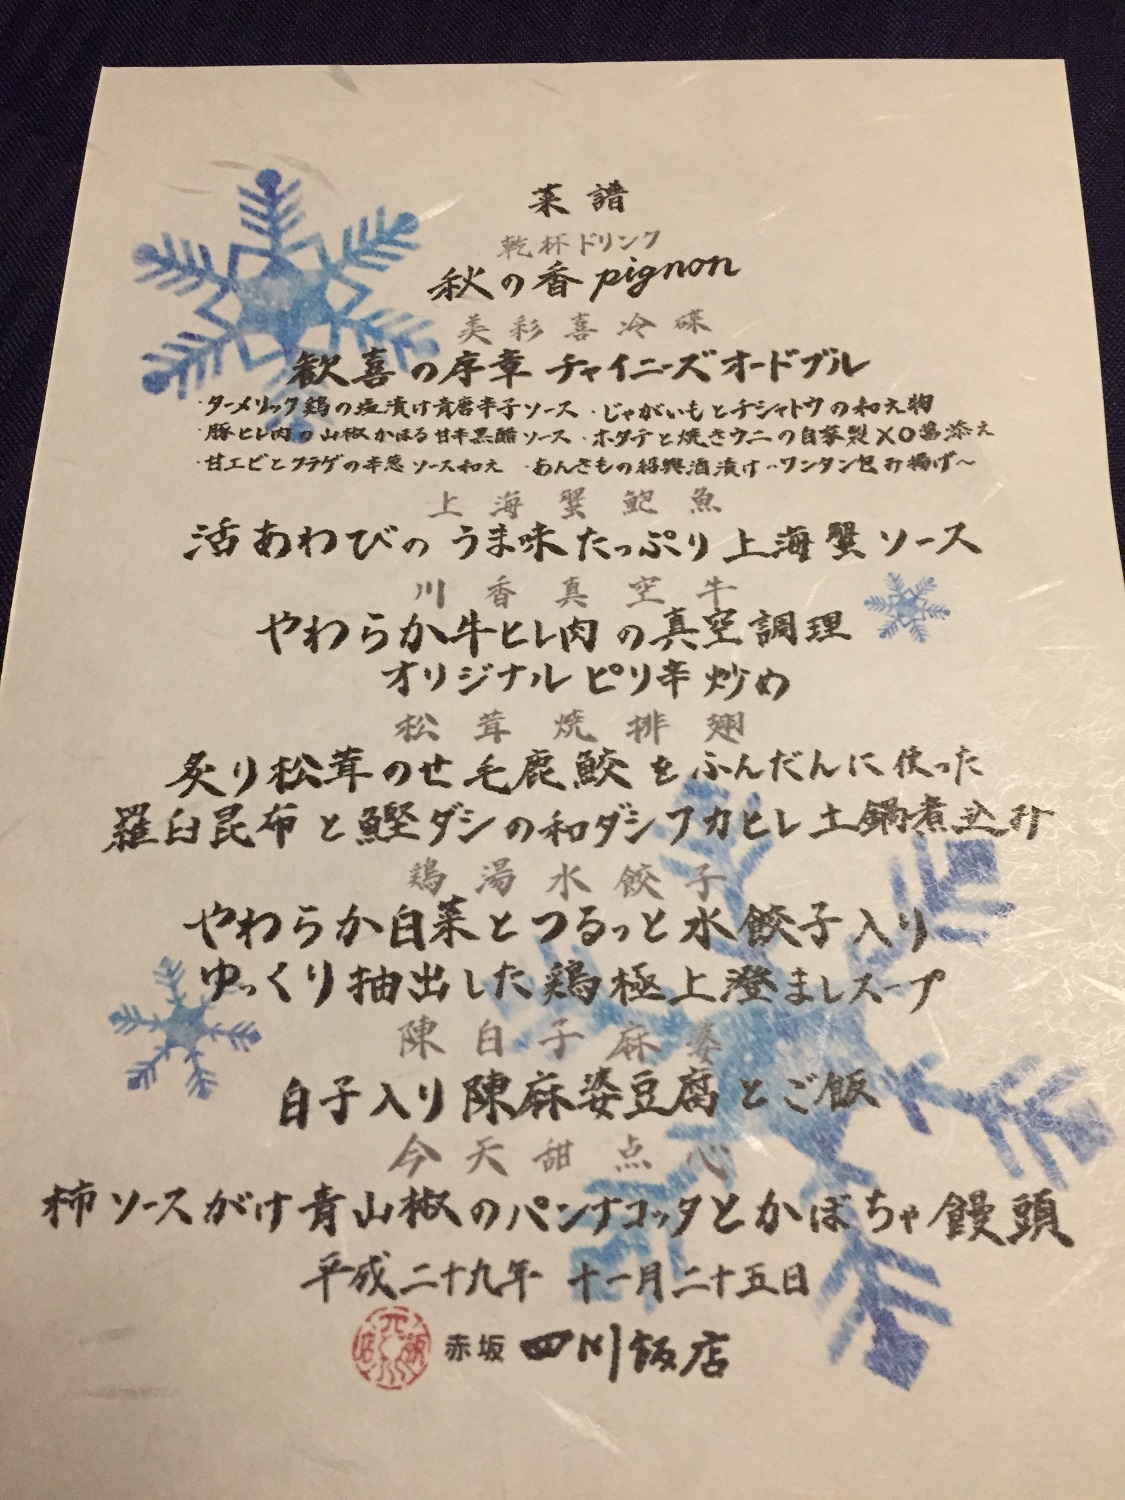 菜譜
乾杯ドリンク
秋の香 pignon
美彩喜冷碟
歓喜の序章 チャイニーズオードブル
・ターメリック鶏の塩漬け青唐辛子ソース ・じゃがいもとチシャトウの和え物
・豚ヒレ肉の山椒かほる甘辛黒酢ソース ・ホタテと焼きウニの自家製XO醤添え
・甘エビとクラゲの辛葱ソース和え ・あんきもの紹興酒漬け~ワンタン包み揚げ~
上海蟹鮑魚
活あわびのうま味たっぷり上海蟹ソース
川香真空牛
やわらか牛ヒレ肉の真空調理
オリジナルピリ辛炒め
松茸焼排翅
炙り松茸のせ毛鹿鮫をふんだんに使った
羅臼昆布と鰹ダシの和ダシフカヒレ土鍋煮込み
鶏湯水餃子
やわらか白菜とつるっと水餃子入り
ゆっくり抽出した鶏極上澄ましスープ
陳白子麻婆
白子入り陳麻婆豆腐とご飯
今天甜点心
柿ソースがけ青山椒のパンナコッタとかぼちゃ饅頭
平成二十九年 十一月二十五日
赤坂 四川飯店